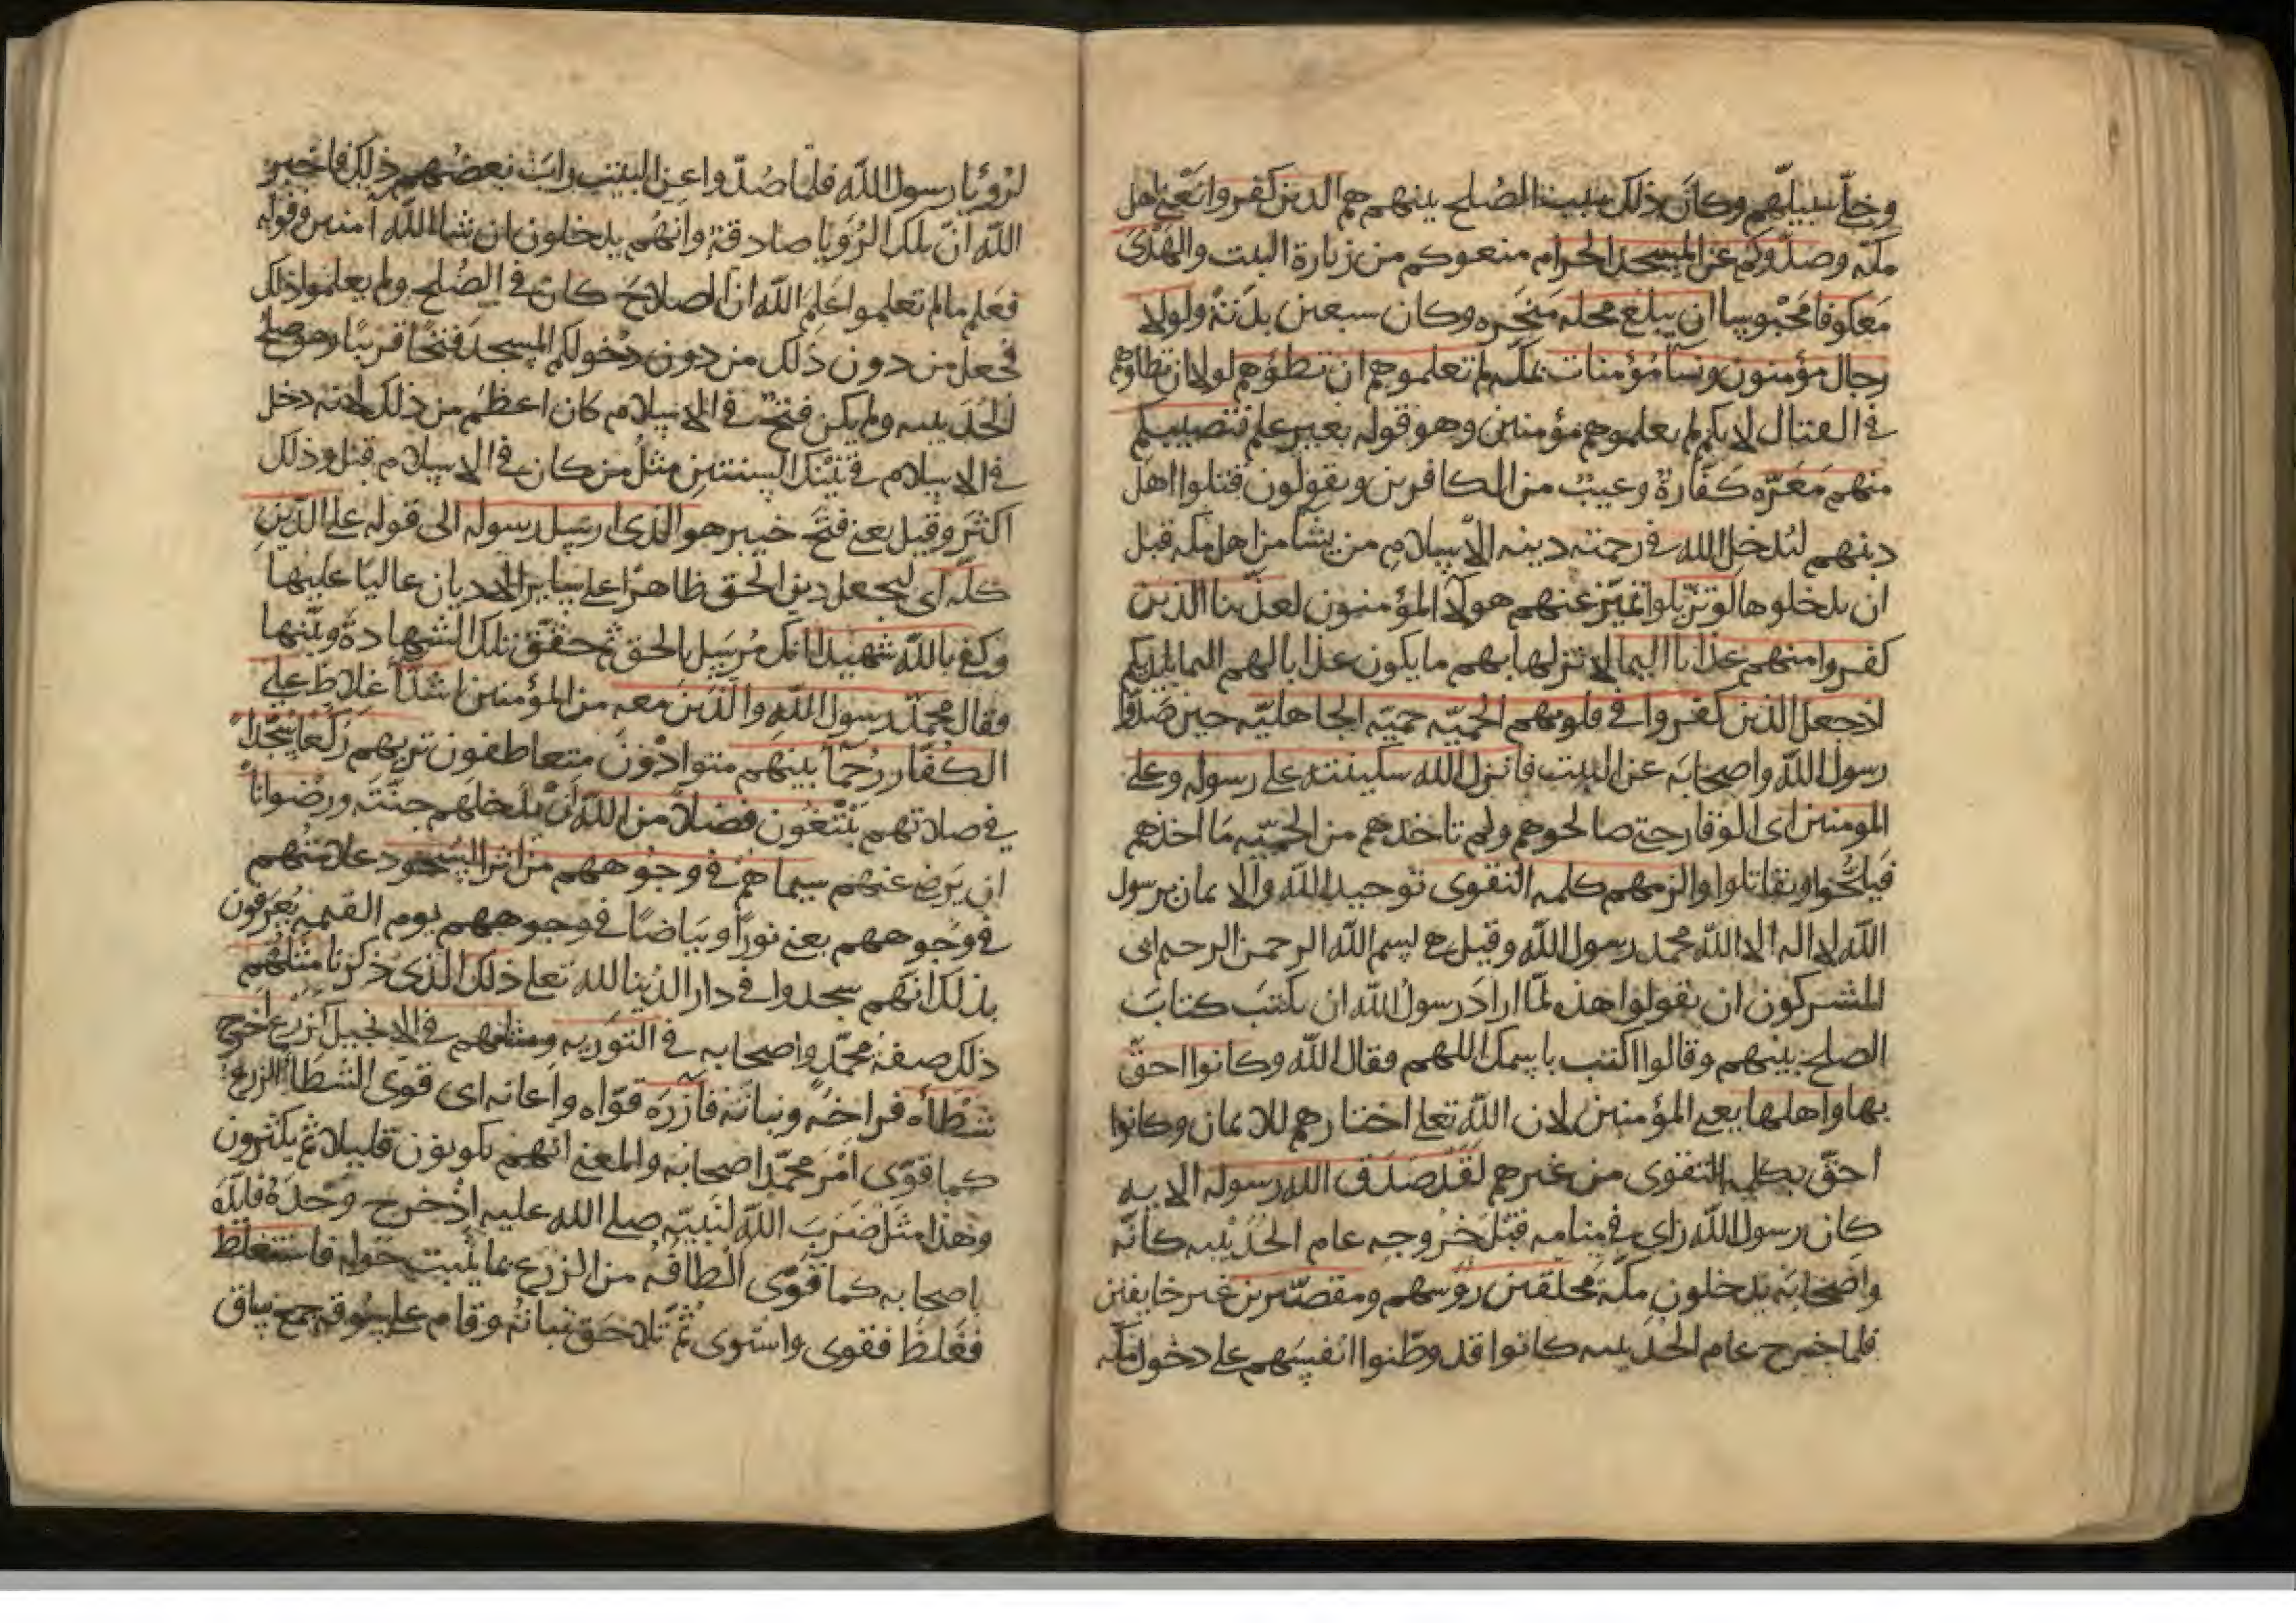 وخلّا سبيلهم وكان ذلك سبب الصُلح بينهم هم الذين كفروا يَعْني اهل
مكه وصدّوكم عن المسجد الحرام منعوكم من زيارة البيت والهَدْىَ
مَعكوفا مَحْبوسا ان يبلغ محله مَنحَره وكان سبعين بدنةً ولولا
رجال مؤمنون ونسآ مُؤمنات بمكّه لم تعلموهم ان تطؤهم لولا ان تطاوهم
في القتال لانكم لم يعلموهم مؤمنين وهو قوله بغير علم فتصيبكم
منهم مَعَرّه كَفّارةٌ وعيبٌ من الكافرين ويقولون قتلوا اهل
دينهم ليُدخل الله في رحمته دينه الاسلام من يشا من اهل مكه قبل
ان يدخلوها لو تزيّلوا تميّز عنهم هولآ المؤمنون لعذّبنا الذين
كفروا منهم عذابا اليما لانزلها بهم ما يكون عذابا لهم اليما بايديكم
اذ جعل الذين كفروا في قلوبهم الحميّه حميّه الجاهليّه حين صَدّوا
رسول الله واصحابَه عن البيت فانزل الله سكينته على رسوله وعلى
المومنين اى الوقار حتى صالحوهم ولم تاخذهم من الحميّه مَا اخذهم
فيلحّوا ويقاتلوا والزمهم كلمه التقوى توحيد الله والايمان برسول
الله لا اله الا الله محمد رسول الله وقيل هى بسم الله الرحمن الرحيم ابى
المشركون ان يقولوا هذه لمّا ارادَ رسولُ الله ان يكتبَ كتابَ
الصلح بينهم وقالوا اكتب باسمك اللهم فقال الله وكانوا احقّ
بها واهلها يعنى المؤمنين لان الله تعلى اختارهم للايمان وكانوا
احقّ بكلمه التقوى من غيرهم لَقَد صَدَق الله رسوله الايه
كان رسول الله راى في منامه قبْلَ خرُوجه عام الحُدَيْبيه كانّه
واصْحابَه يدخلون مكّة مَحلقين رؤسهم ومقصّرين غير خايفين
فلما خرج عام الحُدَيبيه كانوا قد وطّنوا انفسَهم على دخول مكّه
لرُؤيا رسول الله فلمّا صُدّوا عن البيت رابَت بعضهم ذلك فاخبر
الله انّ تلك الرُؤيا صادقةٌ وانهُم يدخلون ان شاالله آمنين وقوله
فعَلِم ما لم تعلموا عَلِمَ الله انّ الصلاحَ كان في الصُلح ولم يعلموا ذلك
فجعل من دون ذلك من دون دخولكم المسجد فتحًا قريبًا وهو صلح
الحُدَيبيه ولم يكن فتحٌ في الاسلام كان اعظمَ من ذلك لانه دخل
في الاسلام في تَيْنك السنتين مثلُ من كان في الاسلام قبل وذلك
اكثرَ وقيل يعنى فتحَ خيبر هو الذى ارسل رسوله الى قوله على الدّينِ
كلّه اى ليجعل دين الحق ظاهرًا على سايرالاديان عاليًا عليها
وكفى بالله شهيدًا انك مُرسَل بالحق ثم حقّق تلك الشهادةَ وبيّنها
فقال محمّد رسول الله والذين معه من المؤمنين اشدّآ غلاظ على
الكُفّار رُحمآ بينهم متوادّون متعاطفون تريهم ركّعًا سُجّدًا
في صلاتهم يَبْتغُون فضلًا من الله انْ يدخلهم جنّتَه ورضْوانًا
ان يَرضى عنهم سيماهُم في وجُوههم من اثر السّجود علامتُهم
في وجُوههم يعنى نورًا وبياضًا في وجوههم يوم القيمه يُعرفون
بذلك انّهم سجدوا في دار الدُنيا لله تعلى ذلك الذى ذكرنا مَثلهم
ذلك صفة محمّد واصحابه في التوريه ومثلهم في الانجيل كزرع اخرج
شطأَه فراخَه ونباتَه فازَرَه قوّاه واعانه اى قوّى الشطأ الزرع
كما قوّى امْرَ محمّد اصحابُه والمعنى انهم يكونون قليلا ثم يكثرون
وهذا مثل ضرَبَ الله لنبيّه صلى الله عليه اذْ خرج وحْدَه فايّدَه
باصحابه كما قوّى الطاقه من الزرع بما يَنْبت حَوله فاستغلظ
فغَلظَ فقوى واستوى ثُمّ تلاحَق نباتُه وقام على سُوقه جمع ساق